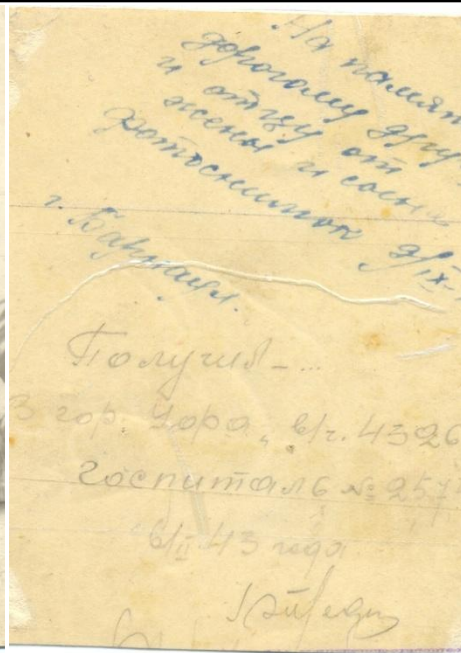 На памят
дорогому друг
и отцу от
жены и сына
фотоснимок 9/IX-
г. Барнаул.
Получил-...
гор. в/ч. 4326
госпиталь № 257
6/II 43 года